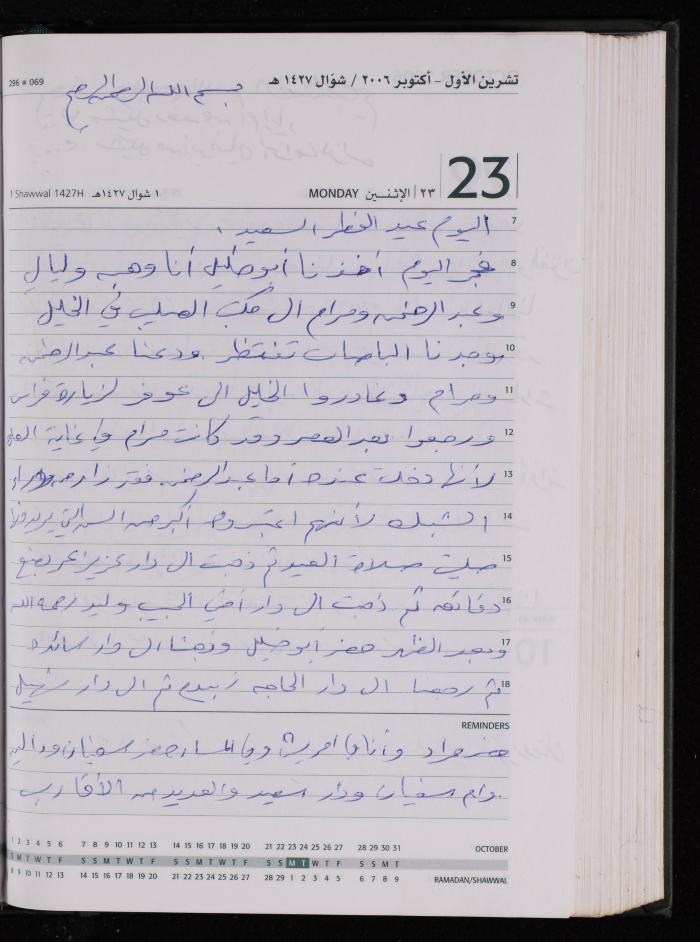 296 ■ 069
تشرين الأول - أكتوبر ٢٠٠٦ / شوّال ١٤٢٧ هـ
بسم الله الرحمن الرحيم
1 Shawwal 1427H ١ شوال ١٤٢٧هـ MONDAY الإثنـين ٢٣ 23
7 اليوم عيد الفطر السعيد .
8 فجر اليوم أخذنا أبو خليل أنا وهبه وليال
9 وعبد الرحمن ومرام الى مكتب الصليب في الخليل
10 ووجدنا الباصات تنتظر . ودعنا عبد الرحمن
11 ومرام وغادروا الخليل الى عوفر لزيارة فراس
12 ورجعوا بعد العصر وقد كانت مرام في غاية
13 لأنها دخلت عنده أما عبد الرحمن فقد زار من وراء
14 الشبك لأنهم اعتبروه أكبر من السن التي يريدونها
15 صليت صلاة العيد ثم ذهبت الى دار عزيز عمر بضع
16 دقائق ثم ذهبت الى دار أخي الحبيب وليد رحمه الله
17 وبعد الظهر حضر أبو خليل وذهبنا الى دار سائده
18 ثم رجعنا الى دار الحاجه زبيده ثم الى دار
REMINDERS
حضر مراد وأنا في وفي المساء حضر سفيان وداليه
وام سفيان ودار سعيد والعديد من الأقارب
1 2 3 4 5 6 7 8 9 10 11 12 13 14 15 16 17 18 19 20 21 22 23 24 25 26 27 28 29 30 31 OCTOBER
S M T W T F S S M T W T F S S M T W T F S S M T W T F S S M T
8 9 10 11 12 13 14 15 16 17 18 19 20 21 22 23 24 25 26 27 28 29 1 2 3 4 5 6 7 8 9 RAMADAN/SHAWWAL